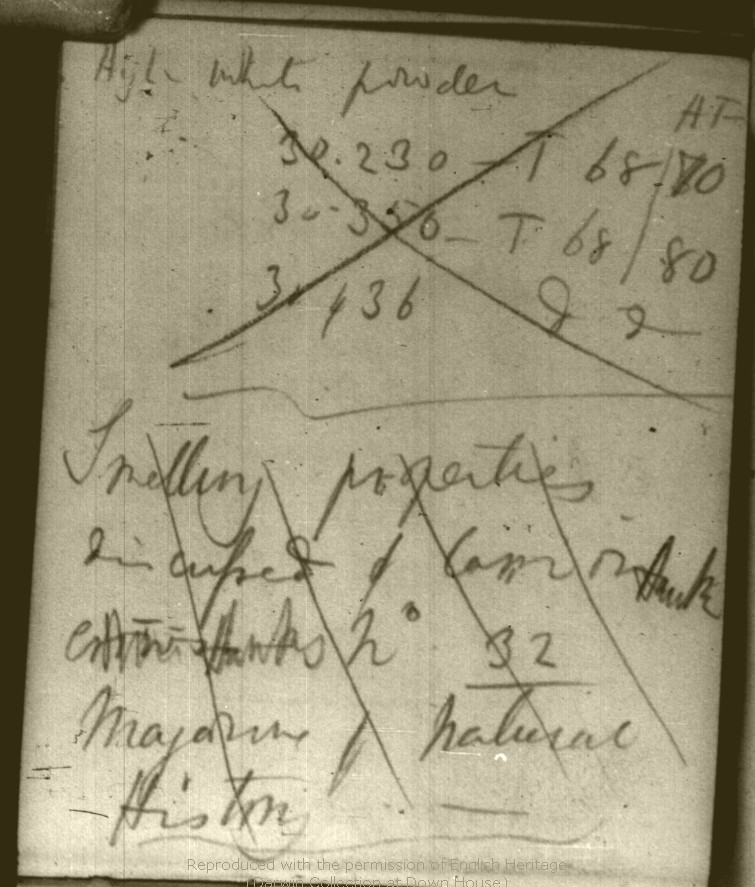 High white powder
AT
30.230 – T 68/70
30.350 – T 68/80
30.436 D D
Smelling properties
discussed of
N° 32
Magazine of Natural
– History –
Reproduced with the permission of English Heritage
(Darwin Collection at Down House.)